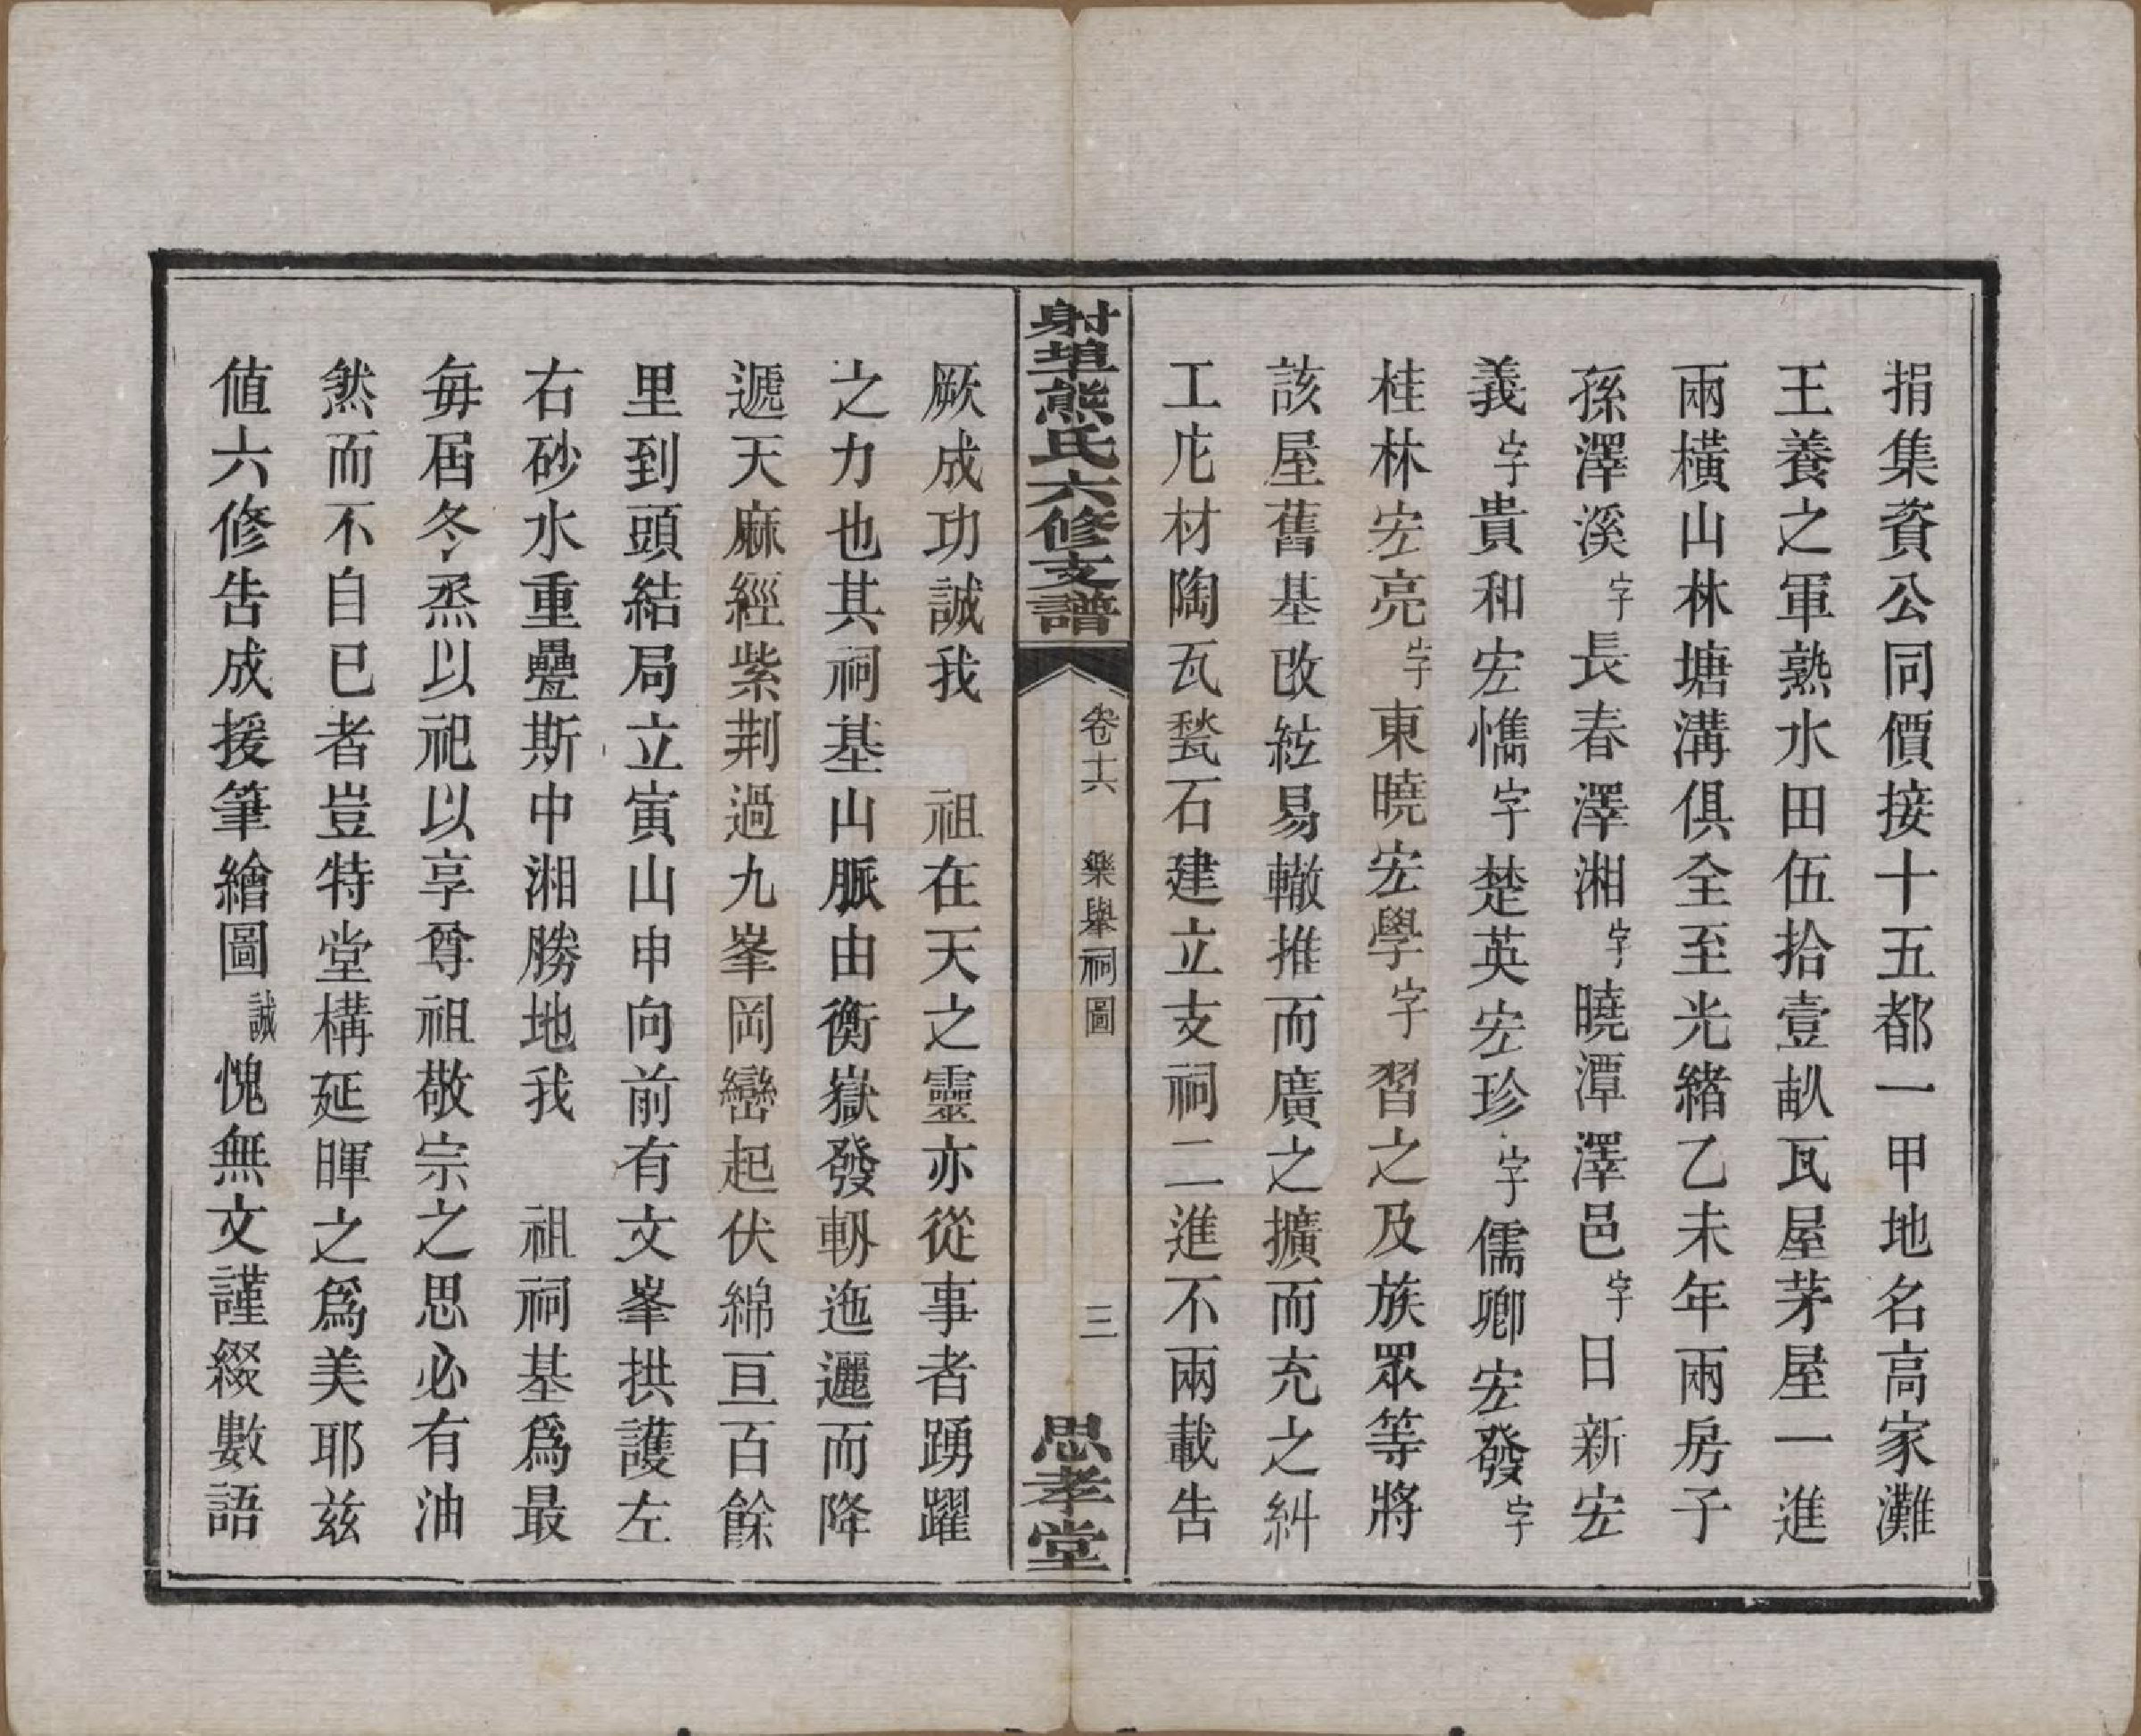 捐集資公同價接十五都一甲地名高家灘
王養之軍熟水田伍拾壹畝瓦屋茅屋一進
兩橫山林塘溝俱全至光緒乙未年兩房子
孫澤溪字長春澤湘字曉潭澤邑字日新宏
義字貴和宏懏字楚英宏珍字儒卿宏發字
桂林宏亮字東曉宏學字習之及族眾等將
該屋舊基改絃易轍推而廣之擴而充之糾
工庀材陶瓦甃石建立支祠二進不兩載告
射埠熊氏六修支譜
卷十六
樂舉祠圖
三
思孝堂
厥成功誠我　祖在天之靈亦從事者踴躍
之力也其祠基山脈由衡嶽發軔迤邐而降
遞天麻經紫荆過九峯岡巒起伏綿亘百餘
里到頭結局立寅山申向前有文峯拱護左
右砂水重疊斯中湘勝地我　祖祠基爲最
每屆冬烝以祀以享尊祖敬宗之思必有油
然而不自已者豈特堂構延暉之爲美耶兹
值六修告成援筆繪圖誠愧無文謹綴數語